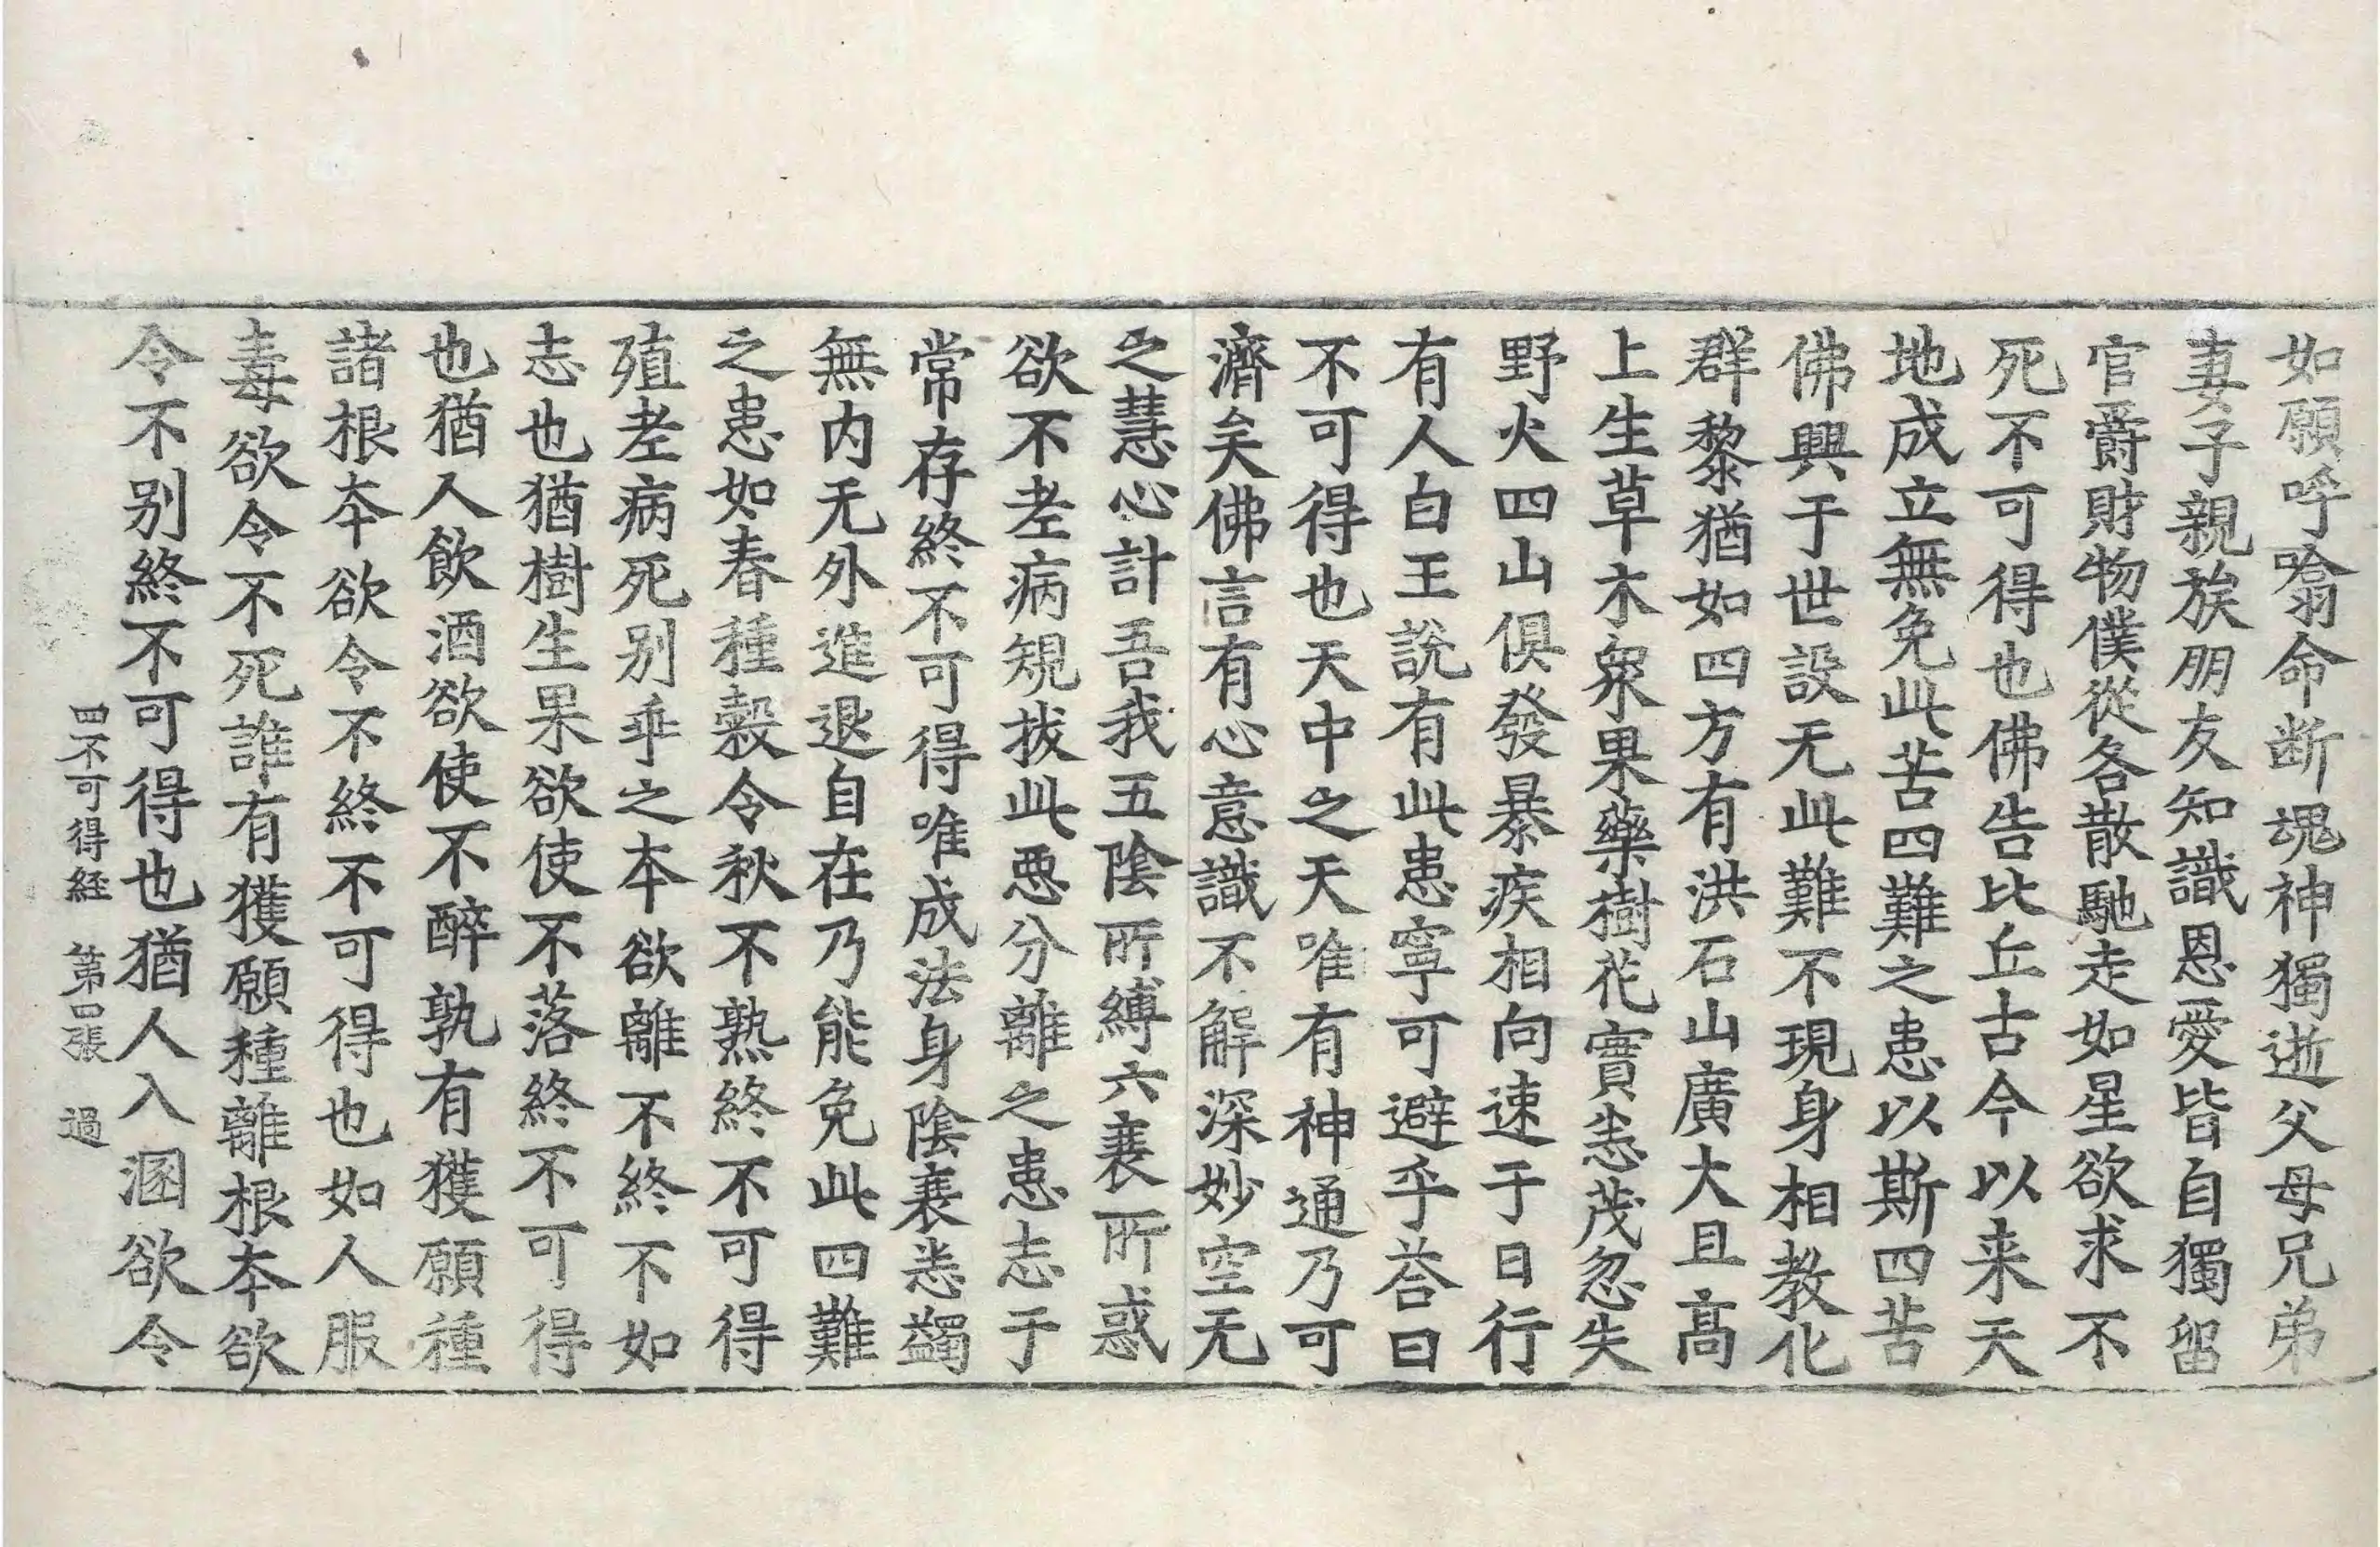 如願呼噏命断魂神獨逝父母兄弟
妻子親族朋友知識恩愛皆自獨留
官爵財物僕從各散馳走如星欲求不
死不可得也佛告比丘古今以来天
地成立無免此苦四難之患以斯四苦
佛興于世設无此難不現身相教化
群黎猶如四方有洪石山廣大且髙
上生草木衆果藥樹花實恙茂忽失
野火四山俱發暴疾相向速于日行
有人白王說有此患寧可避乎荅曰
不可得也天中之天唯有神通乃可
濟矣佛言有心意識不解深妙空无
之慧心計吾我五陰所縛六衰所惑
欲不老病規拔此惡分離之患志于
常存終不可得唯成法身陰衰悉蠲
無内无外進退自在乃能免此四難
之患如春種穀令秋不熟終不可得
殖老病死别乖之本欲離不終不如
志也猶樹生果欲使不落終不可得
也猶人飲酒欲使不醉孰有獲願種
諸根本欲令不終不可得也如人服
毒欲令不死誰有獲願種離根本欲
令不别終不可得也猶人入溷欲令
四不可得経 第四張 過